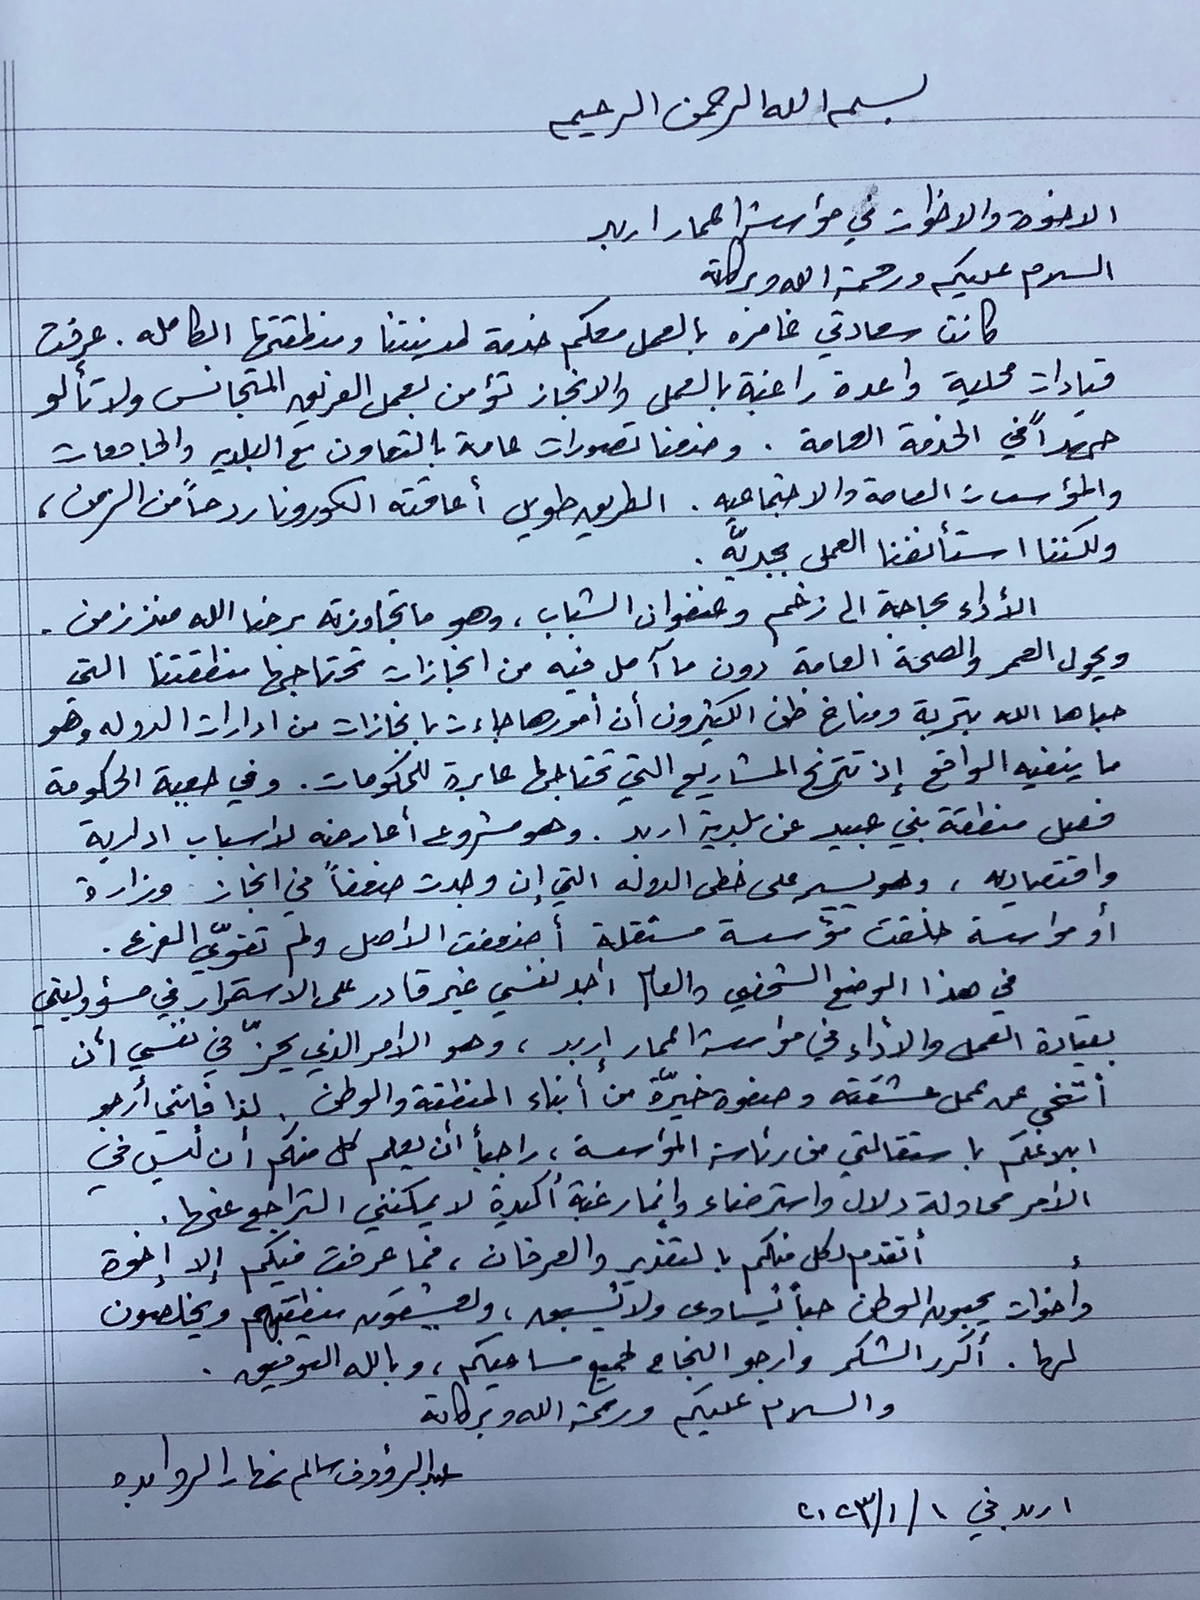 بسم الله الرحمن الرحيم
الاخوة والاخوات في مؤسسة اعمار اربد
السلام عليكم ورحمة الله وبركاته
كانت سعادتي غامره بالعمل معكم خدمة لمدينتنا ومنطقتها الكامله. عرفت
قيادات محلية واعدة راغبة بالعمل والانجاز تؤمن بعمل الفريق المتجانس ولا تألو
جهداً في الخدمة العامة. وضعنا تصورات عامة بالتعاون مع البلديه والجامعات
والمؤسسات العامة والاجتماعيه. الطريق طويل أعاقته الكورونا ردحاً من الزمن،
ولكننا استأنفنا العمل بجديّة.
الأداء بحاجة الى زخم وعنفوان الشباب، وهو ما تجاوزته برضا الله منذ زمن.
ويحول العمر والصحة العامة دون ما آمل فيه من انجازات تحتاجها منطقتنا التي
حباها الله بتربة ومناخ ظن الكثيرون أن أمورها جاءت بانجازات من ادارات الدوله وهو
ما ينفيه الواقع إذ تترنح المشاريع التي تحتاجها عابرة للحكومات. وفي جعبة الحكومة
فصل منطقة بني عبيد عن بلدية اربد. وهو مشروع أعارضه لاسباب ادارية
واقتصاديه، وهو يسير على خطى الدوله التي إن وجدت ضعفاً في انجاز وزارة
أو مؤاسسة خلقت مؤسسة مستقلة أضعفت الاصل ولم تقوّي الفرع.
في هذا الوضع الشخصي والعام اجد نفسي غير قادر على الاستمرار في مسؤوليتي
بقيادة العمل والأداء في مؤاسسة اعمار إربد، وهو الأمر الذي يحزّ في نفسي أن
أتنحى عن عمل عشقته وصفوة خيرّة من أبناء المنطقة والوطن. لذا فانني أرجو
ابلاغكم باستقالتي من رئاسة المؤسسة، راجياً أن يعلم كل منكم أن ليس في
الامر محاولة دلال واسترضاء وانما رغبة أكيدة لا يمكنني التراجع عنها.
أتقدم لكل منكم بالتقدير والعرفان، فما عرفت فيكم إلا إخوة
وأخوات يحبون الوطن حباً يتساوى ولا يُسبق، ويعشقون منطقتهم ويخلصون
لها. أكرر الشكر وارجو النجاح لجميع مساعيكم، وبالله التوفيق.
والسلام عليكم ورحمة الله وبركاته
عبدالرؤوف سالم نهار الروابده
اربد في ١/١/٢٠٢٣